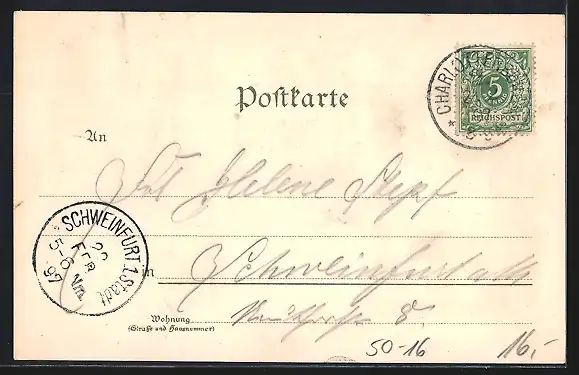 Postkarte
CHARLOTTEN
5
PFENNIG
REICHSPOST
An
Frl Helene Stepf
SCHWEINFURT 1. Stadt
FEB
5-6 NM
97
in Schweinfurt
8.
Wohnung
(Straße und Hausnummer)
50-16
16,-